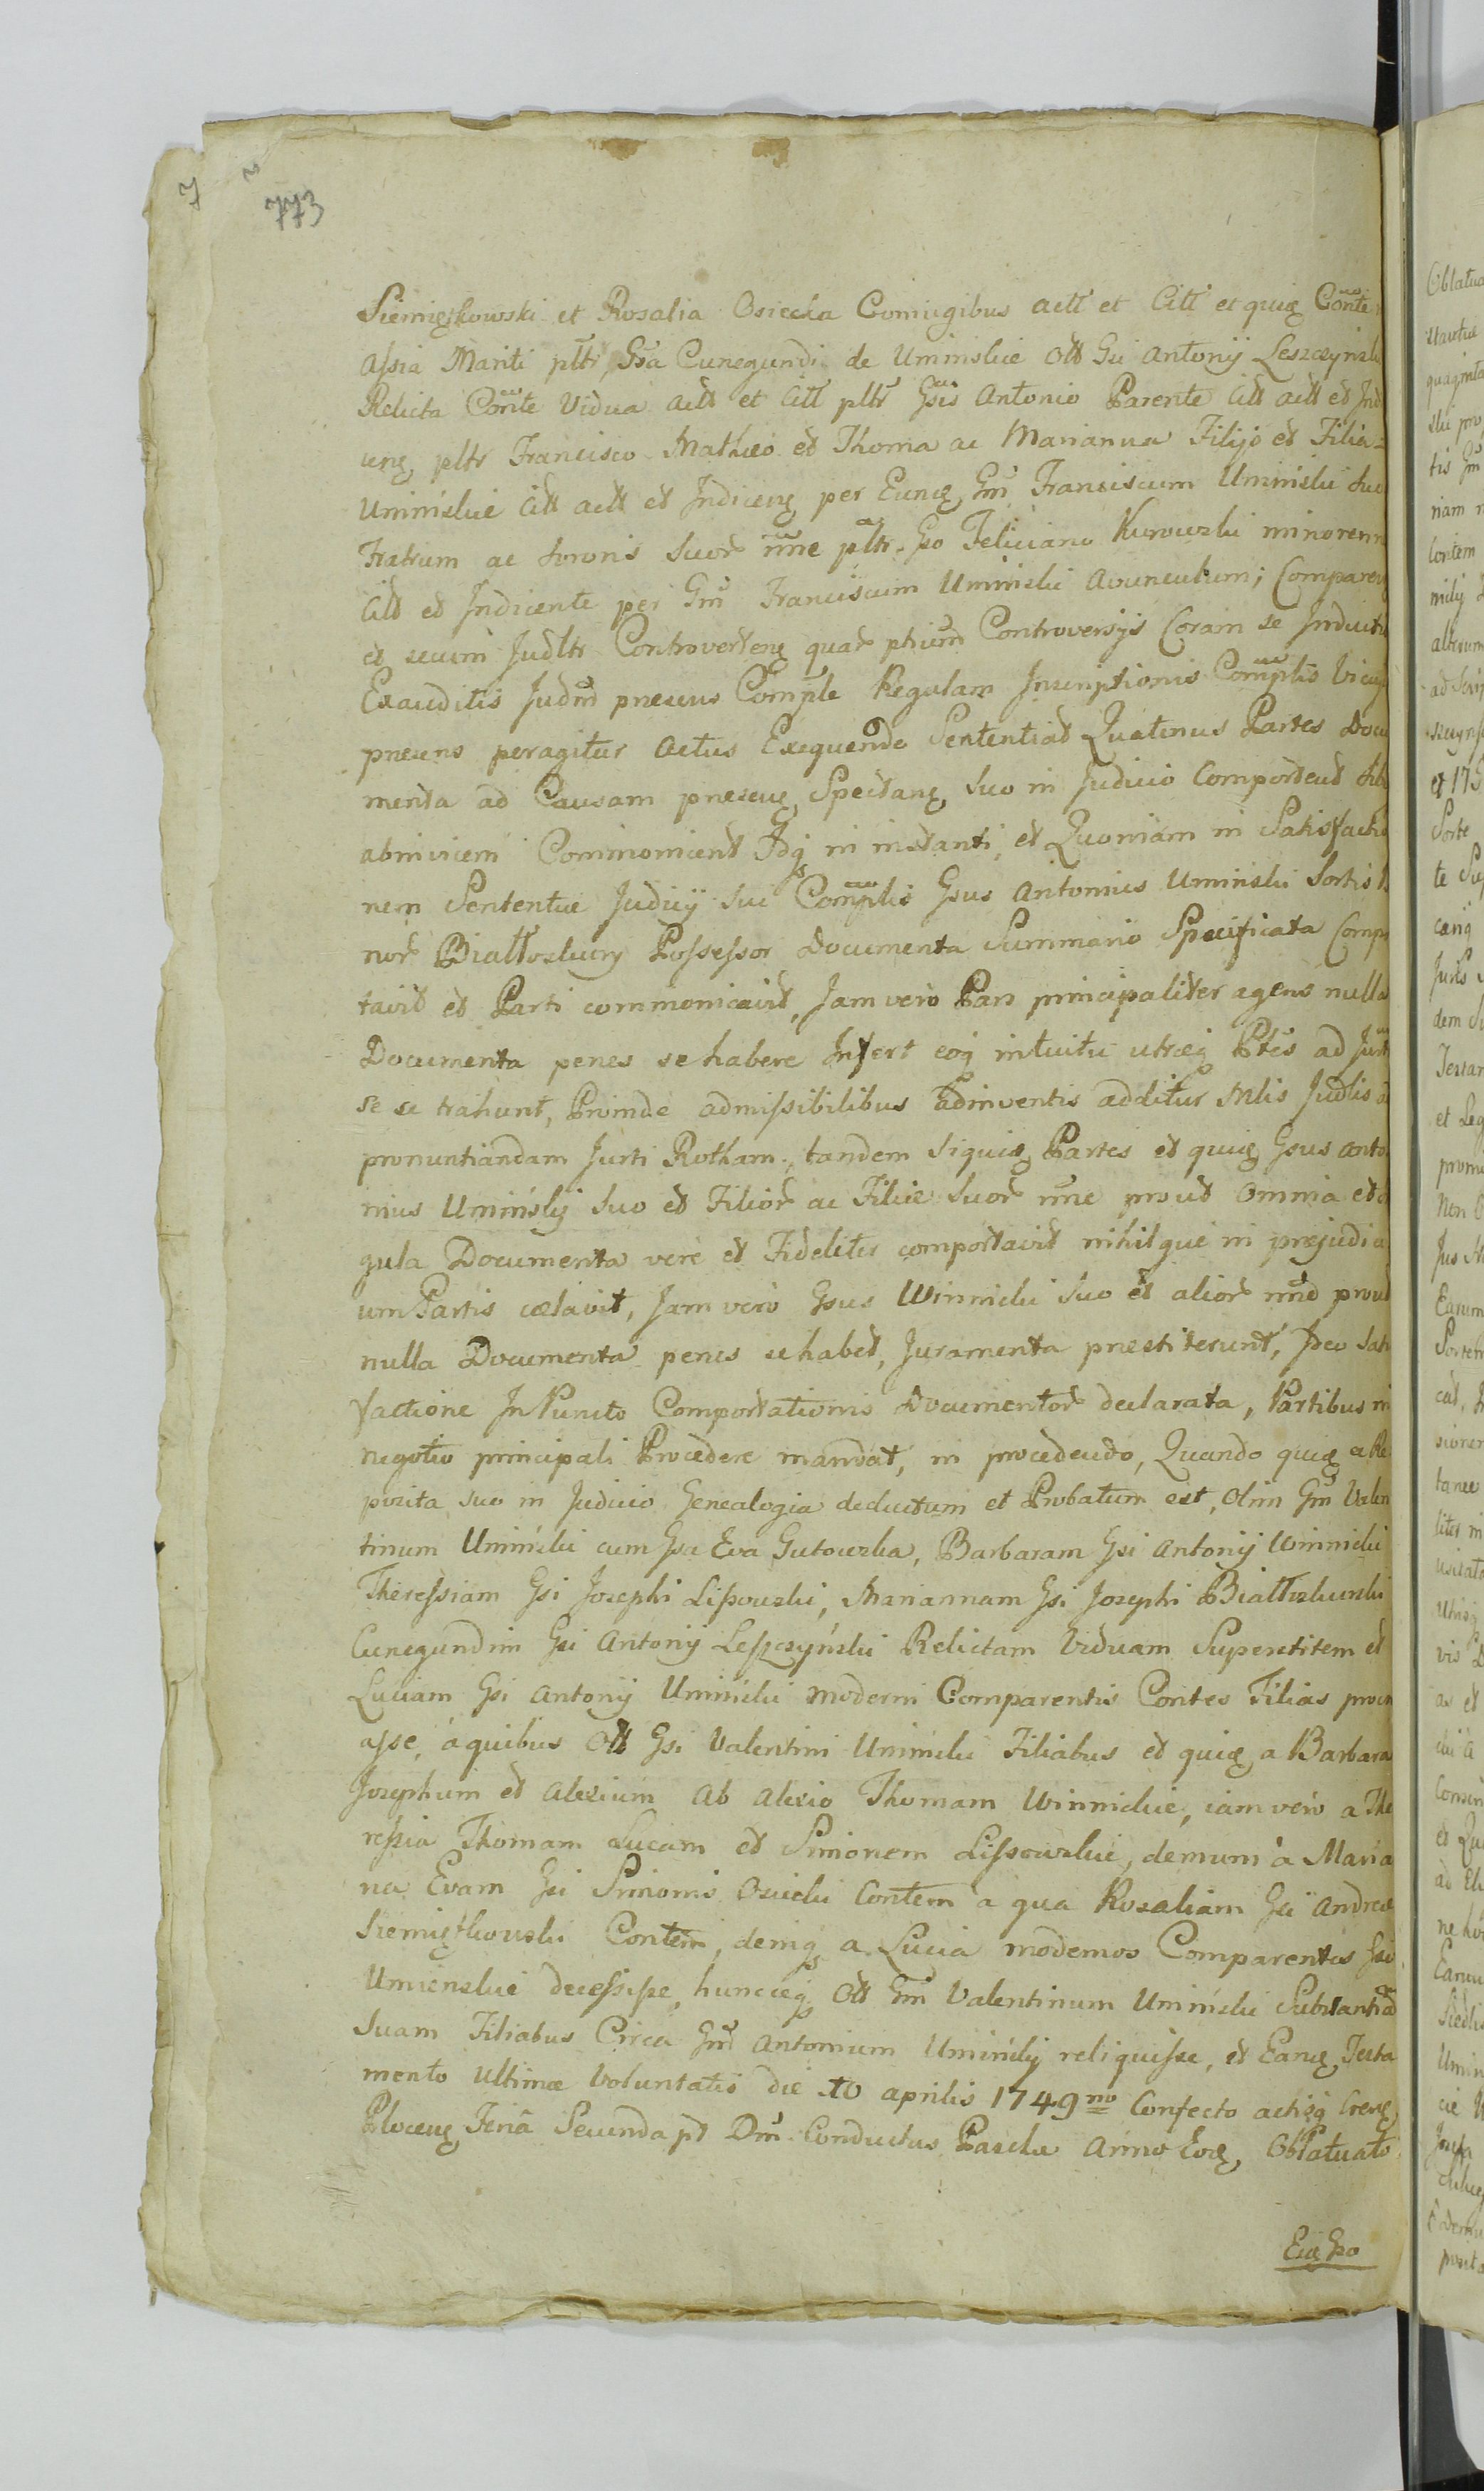 7
773
Siemiętkowski et Rosalia Osiecka Coniugibus actt et Citt et quiq Conte
assia Mariti pltr Gsa Cunegundi de Uminskie Ott Gsi Antonij Leszczynski
Relicta Conte Vidua actt et Citt pltr Gsis Antonio Parente Citt actt et Ind
ceng pltr Francisco Matheo et Thoma ac Marianna Filijs et Filia
Uminskie Citt actt et Indiceng per Eung Gm Franciscum Uminski suo
Fratrum ac Sororis Suor nne pltr Gso Feliciano Kurowski minorenn
Citt et Indicente per Gm Franciscum Uminski Avunculum; Comparen
et secum Judltr Controverteng quar ptium Controversijs Coram se Inductis
Exauditis Judm pnesens Comple Regulam Inscriptionis Complis
pnesens peragitur Actus Exequendo Sententiad Quatenus Partes Docu
menta ad Causam pneseng Spectang Suo in Judicio Comportent
abinvicem Commonicent Idq in instanti, et Quoniam in Satisfactio
nem Sententiae Judicij Sui Complis Gsus Antonius Uminski Sortis
nor Białłoskury Possessor Documenta Summario Specificata Compo
tavit et Parti commonicavit, Jam vero Pars principaliter agens nulla
Documenta penes se habere Infert eoq intuitu utraeq Ptes ad Jurta
se se trahunt, Proinde admissibilibus adinventis additur Mlis Judlis
pronuntiandam Jurti Rotham, tandem siquiq Partes et quiq Gsus Anto
nius Uminsky Suo et Filior ac Filiae Suor nne prout Omnia et
gula Documenta vere et Fideliter comportavit nihilque in prejudici
um Partis caelavit, Jam vero Gsus Winnicki Suo et alior nne prout
nulla Documenta penes se habet, Juramenta praestiterunt, Ideo Satis
factione In Puncto Comportationis Documentor declarata, Partibus in
negotio principali Procedere mandat, in procedendo, Quando quiq a Re
posita suo in Judicio Genealogia deductum et Probatum est, Olim Gm Valen
tinum Uminski cum Gsa Eva Gutowska, Barbaram Gsi Antonij Winnicki
Theressiam Gsi Josephi Lissowski, Mariannam Gsi Josephi Białłoskurski
Cunegundim Gsi Antonij Leszczyński Relictam Viduam Superstitem et
Luciam Gsi Antonij Uminski moderni Comparentis Contes Filias procre
asse, á quibus Ott Gsi Valentini Uminski Filiabus et quiq a Barbara
Josephum et Alexium Ab Alexio Thomam Winnickie, iam vero a The
ressia Thomam Lucam et Simonem Lissowskie, demum à Maria
na Evam Gsi Simonis Osiecki Contem a qua Rosaliam Gsi Andreae
Siemiętkowski Contem, deniq a Lucia modernos Comparentes Gsi
Umienskie decessisse, hunceq Ott Gm Valentinum Uminski Substantia
Suam Filiabus Circa Gm Antonium Uminsky reliquisse, et Eang Testa
mento Ultimae Voluntatis die 10 aprilis 1749no Confecto actisq Creng
Ploceng Feria Secunda pt Dm. Conductus Pascha Anno Eoq Oblatuato
Eiq Gso